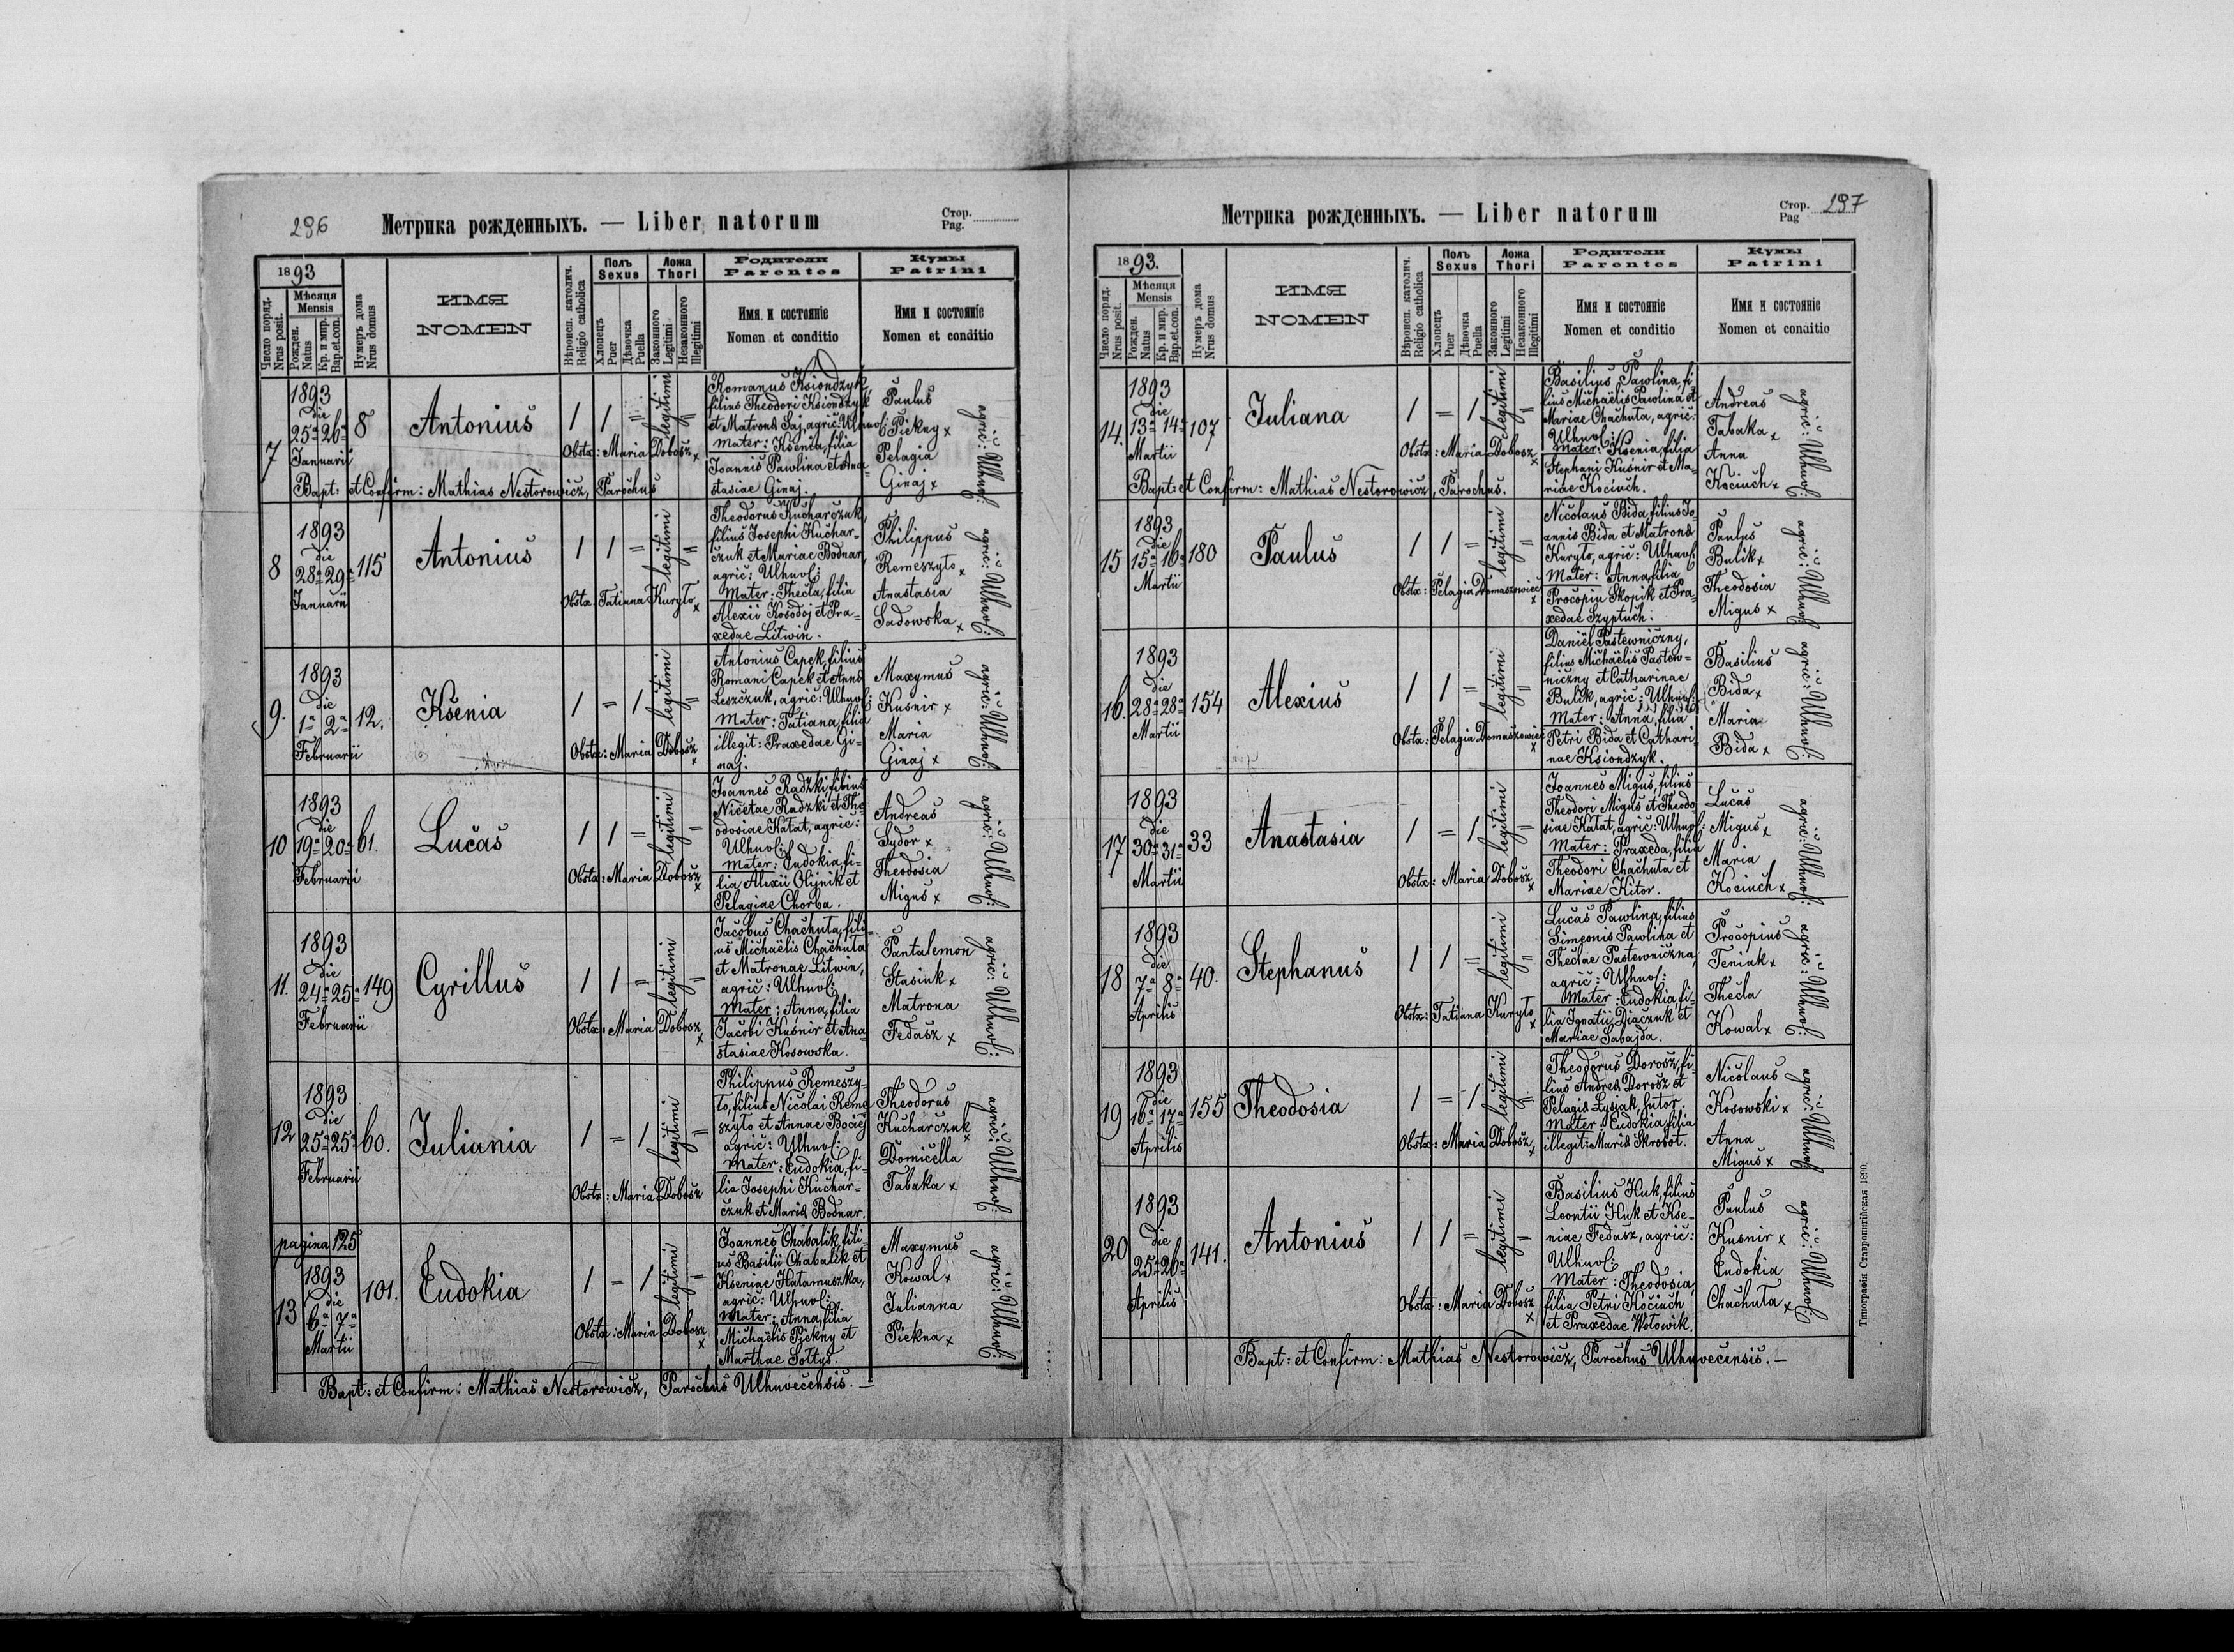 296
Метрика рожденныхъ. — Liber natorum
Стор.
Pag.
1893
Число поряд.
Nrus posit.
Мѣсяця
Mensis
Рожден.
Natus
Кр. и мир.
Bap.et.con.
Нумеръ дома
Nrus domus
ИМЯ
NOMEN
Вѣроисп. католич.
Religio catholica
Полъ
Sexus
Хлопецъ
Puer
Дѣвочка
Puella
Ложа
Thori
Законного
Legitimi
Незаконного
Illegitimi
Родители
Parentes
Имя и состояніе
Nomen et conditio
Кумы
Patrini
Имя и состояніе
Nomen et conditio
7
1893
die
25a 26a
Januarii
8
Antonius
1 1 =
legitimi
=
Obstx: Maria Dobosz x
Romanus Ksiondzyk,
filius Theodori Ksiondzyk
et Matronae Saj, agric: Uhnov:
Mater: Ksenia, filia
Joannis Pawlina et Ana-
stasiae Ginaj.
Paulus
Piekny x
Pelagia
Ginaj x
agric: Uhnov:
Bapt: et Confirm: Mathias Nestorowicz, Parochus
8
1893
die
28a 29a
Januarii
115
Antonius
1 1 =
legitimi
=
Obstx: Tatiana Kuryło x
Theodorus Kucharczuk,
filius Josephi Kuchar-
czuk et Mariae Bodnar,
agric: Ulhuv:
Mater: Thecla, filia
Alexii Kosodoj et Pra-
xedae Litwin.
Philippus
Remeszyło x
Anastasia
Sadowska x
agric: Ulhuv:
9.
1893
die
1a 2a
Februarii
12.
Ksenia
1 = 1
legitimi
=
Obstx: Maria Dobosz x
Antonius Capek, filius
Romani Capek et Annae
Leszczuk, agric: Ulhuv:
Mater: Tatiana, filia
illegit: Praxedae Gi-
naj.
Maxymus
Kusnir x
Maria
Ginaj x
agric: Ulhuv:
10
1893
die
19a 20a
Februarii
61.
Lucas
1 1 =
legitimi
=
Obstx: Maria Dobosz x
Joannes Radzki, filius
Nicetae Radzki et The-
odosiae Katat, agric:
Ulhuv:
Mater: Eudokia, fi-
lia Alexii Olijnik et
Pelagiae Chorba.
Andreas
Sydor x
Theodosia
Migus x
agric: Ulhuv:
11.
1893
die
24a 25a
Februarii
149
Cyrillus
1 1 =
legitimi
=
Obstx: Maria Dobosz x
Jacobus Chachuta, fili-
us Michaëlis Chachuta
et Matronae Litwin,
agric: Ulhuv:
Mater: Anna, filia
Jacobi Kusnir et Ana-
stasiae Kosowska.
Pantalemon
Stasiuk x
Matrona
Fedasz x
agric: Ulhuv:
12
1893
die
25a 25a
Februarii
60.
Juliania
1 = 1
legitimi
=
Obstx: Maria Dobosz
Philippus Remeszy-
ło, filius Nicolai Reme-
szyło et Annae Bociej
agric: Ulhuv:
Mater: Eudokia, fi-
lia Josephi Kuchar-
czuk et Mariae Bodnar.
Theodorus
Kucharczuk x
Domicella
Tabaka x
agric: Ulhuv:
pagina 125
13
1893
die
6a 7a
Martii
101.
Eudokia
1. = 1
legitimi
=
Obstx: Maria Dobosz x
Joannes Chabalik, fili-
us Basilii Chabalik et
Kseniae Hatamuszka,
agric: Ulhuv:
Mater: Anna, filia
Michaëlis Piekny et
Marthae Sołtys.
Maxymus
Kowal x
Julianna
Piekna x
agric: Ulhuv:
Bapt: et Confirm: Mathias Nestorowicz, Parochus Ulhuvecensis. —
Метрика рожденныхъ. — Liber natorum
Стор.
Pag
297
1893.
Число поряд.
Nrus posit.
Мѣсяця
Mensis
Рожден.
Natus
Кр. и мир.
Bap.et.con.
Нумеръ дома
Nrus domus
ИМЯ
NOMEN
Вѣроисп. католич.
Religio catholica
Полъ
Sexus
Хлопецъ
Puer
Дѣвочка
Puella
Ложа
Thori
Законного
Legitimi
Незаконного
Illegitimi
Родители
Parentes
Имя и состояніе
Nomen et conditio
Кумы
Patrini
Имя и состояніе
Nomen et conditio
14.
1893
die
13a 14a
Martii
107
Juliana
1 = 1
legitimi
=
Obstx: Maria Dobosz x
Basilius Pawlina, fi-
lius Michaëlis Pawlina et
Mariae Chachuta, agric:
Ulhuv:
Mater: Ksenia, filia
Stephani Kusnir et Ma-
riae Kociuch.
Andreas
Tabaka x
Anna
Kociuch x
agric: Ulhuv:
Bapt: et Confirm: Mathias Nestorowicz, Parochus.
15
1893
die
15a 16a
Martii
180
Paulus
1 1 =
legitimi
=
Obstx: Pelagia Domaszowiec x
Nicolaus Bida, filius Jo-
annis Bida et Matronae
Kuryło, agric: Ulhuv:
Mater: Anna, filia
Procopiu Skopik et Pra-
xedae Szyptuch.
Paulus
Bulik x
Theodosia
Migus x
agric: Ulhuv:
16.
1893
die
28a 28a
Martii
154
Alexius
1 1 =
legitimi
=
Obstx: Pelagia Domaszowiec x
Daniël Pastewniczny,
filius Michaëlis Pastew-
niczny et Catharinae
Bulik, agric: Ulhuv:
Mater: Anna, filia
Petri Bida et Cathari-
nae Ksiondzyk.
Basilius
Bida x
Maria
Bida x
agric: Ulhuv:
17
1893
die
30a 31a
Martii
33
Anastasia
1 = 1
legitimi
=
Obstx: Maria Dobosz x
Joannes Migus, filius
Theodori Migus et Theodo-
siae Katat, agric: Ulhuv:
Mater: Praxeda, filia
Theodori Chachuta et
Mariae Kitor.
Lucas
Migus x
Maria
Kociuch x
agric: Ulhuv:
18
1893
die
7a 8a
Aprilis
40.
Stephanus
1 1 =
legitimi
=
Obstx: Tatiana Kuryło x
Lucas Pawlina, filius
Simeonis Pawlina et
Theclae Pastewniczna,
agric: Ulhuv:
Mater: Eudokia, fi-
lia Ignatii Diaczuk et
Mariae Sabajda.
Procopius
Feniuk x
Thecla
Kowal x
agric: Ulhuv:
19
1893
die
16a 17a
Aprilis
155
Theodosia
1 = 1
legitimi
=
Obstx: Maria Dobosz x
Theodorus Dorosz, fi-
lius Andreae Dorosz et
Pelagiae Łysiak, sutor.
Mater: Eudokia, filia
illegit: Mariae Skrobot.
Nicolaus
Kosowski x
Anna
Migus x
agric: Ulhuv:
20
1893
die
25a 26a
Aprilis
141.
Antonius
1 1 =
legitimi
=
Obstx: Maria Dobosz x
Basilius Huk, filius
Leontii Huk et Kse-
niae Fedasz, agric:
Ulhuv:
Mater: Theodosia,
filia Petri Kociuch
et Praxedae Wołowik.
Paulus
Kusnir x
Eudokia
Chachuta x
agric: Ulhuv:
Bapt: et Confirm: Mathias Nestorowicz, Parochus Ulhuvecensis. —
Типографія Ставропигійская 1890.